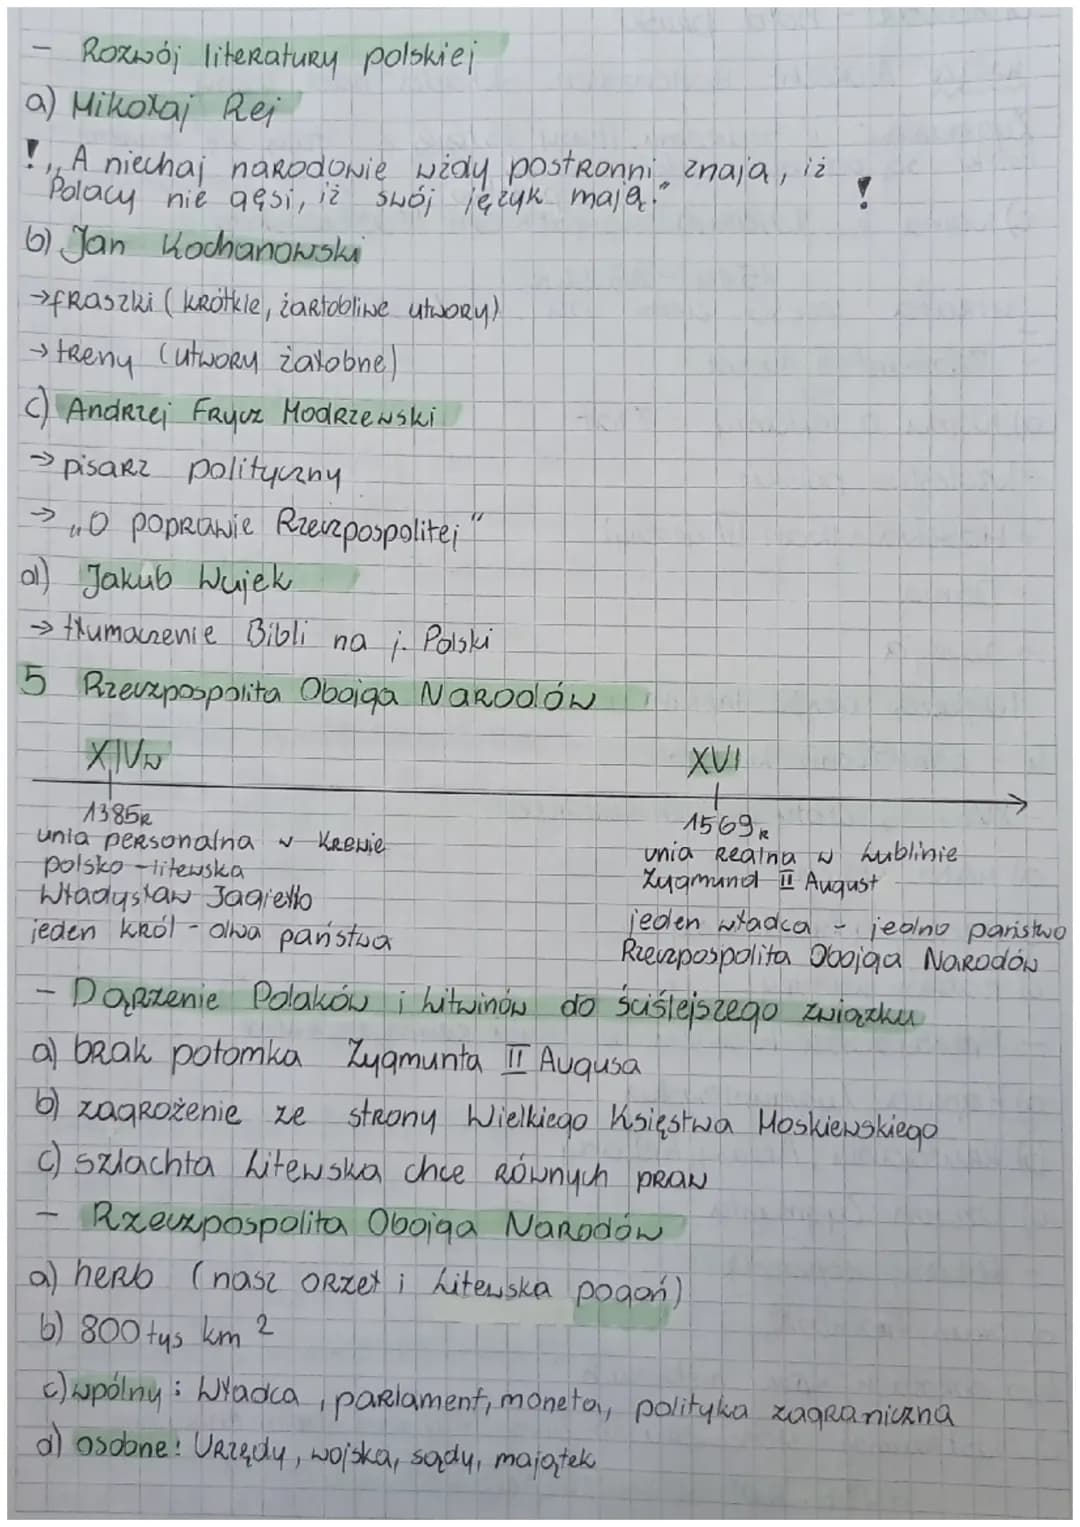 - Rozwój literatury polskiej
a) Mikołaj Rej
! „A niechaj narodowie wżdy postronni znają, iż
Polacy nie gęsi, iż swój język mają." !
b) Jan Kochanowski
→ fraszki (krótkie, żartobliwe utwory)
→ treny (utwory żałobne)
c) Andrzej Frycz Modrzewski
→ pisarz polityczny
→ „O poprawie Rzeczpospolitej"
d) Jakub Wujek
→ tłumaczenie Bibli na j. Polski
5 Rzeczpospolita Obojga Narodów
XIVw XVI
1385r 1569r
unia personalna w Krewie
polsko-litewska
Władysław Jagiełło
jeden król - dwa państwa
unia realna w Lublinie
Zygmund II August
jeden władca - jedno państwo
Rzeczpospolita Obojga Narodów
- Dąrzenie Polaków i Litwinów do ściślejszego związku
a) brak potomka Zygmunta II Augusa
b) zagrożenie ze strony Wielkiego Księstwa Moskiewskiego
c) szlachta Litewska chce równych praw
- Rzeczpospolita Obojga Narodów
a) herb (nasz orzeł i Litewska pogoń)
b) 800 tys km²
c) wpólny: Władca, parlament, moneta, polityka zagraniczna
d) osobne: Urzędy, wojska, sądy, majątek